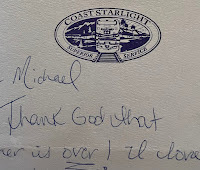 COAST STARLIGHT
SUPERIOR SERVICE
Michael
Thank God that
is over! I love